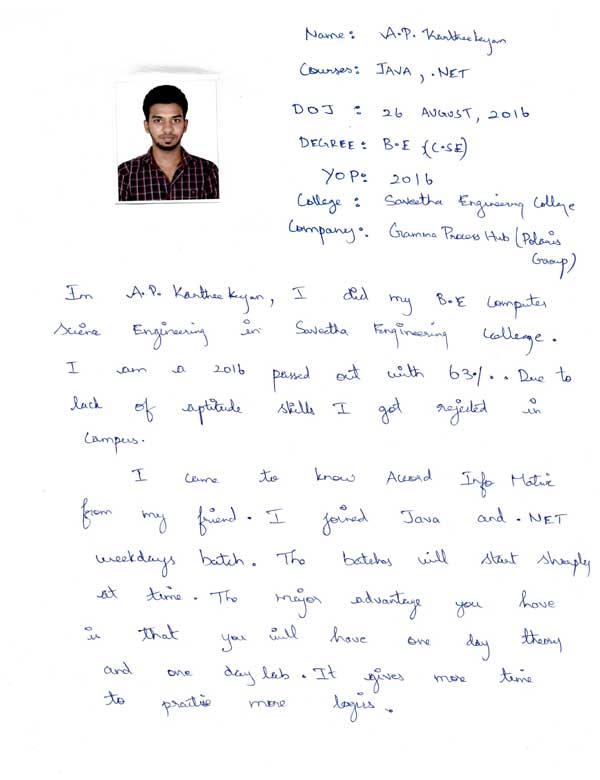 Name: A.P. Kartheekeyan
Courses: JAVA, .NET
DOJ : 26 AUGUST, 2016
DEGREE: B.E {C.SE)
YOP: 2016
College : Saveetha Engineering College
Company: Gramma Process Hub (Polaris
Group)
Im A.P. Kartheekeyan, I did my B.E Computer
Sciene Engineering in Saveetha Engineering College.
I am a 2016 passed out with 63%.. Due to
lack of aptitude skills I got rejected in
campus.
I came to know Accord Info Matrix
from my friend. I joined Java and .NET
weekdays batch. The batches will start sharply
at time. The major advantage you have
is that you will have one day theory
and one day lab. It gives more time
to practise more logics.